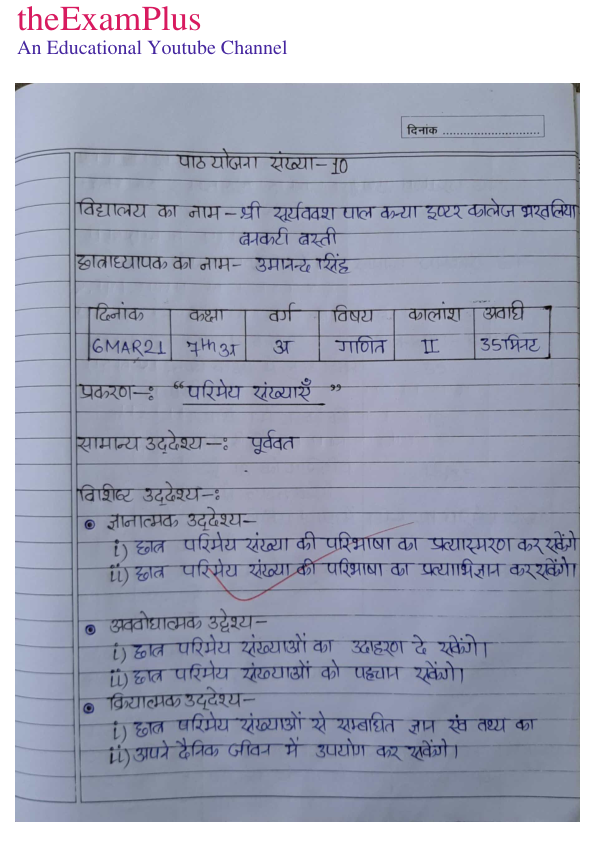 theExamPlus
An Educational Youtube Channel
दिनांक ............................
पाठ योजना संख्या-10
विद्यालय का नाम - श्री सूर्यवक्श पाल कन्या इण्टर कालेज भरवलिया
बनकटी बस्ती
छात्राध्यापक का नाम- उमानन्द सिंह
दिनांक कक्षा वर्ग विषय कालांश अवधि
6MAR21 7th अ अ गणित II 35मिनट
प्रकरण-: “परिमेय संख्याएँ”
सामान्य उद्देश्य-: पूर्ववत
विशिष्ट उद्देश्य-:
ज्ञानात्मक उद्देश्य-
i) छात्र परिमेय संख्या की परिभाषा का प्रत्यास्मरण कर सकेंगे
ii) छात्र परिमेय संख्या की परिभाषा का प्रत्याभिज्ञान कर सकेंगे।
अवबोधात्मक उद्देश्य-
i) छात्र परिमेय संख्याओं का उदाहरण दे सकेंगे।
ii) छात्र परिमेय संख्याओं को पहचान सकेंगे।
क्रियात्मक उद्देश्य-
i) छात्र परिमेय संख्याओं से सम्बंधित ज्ञान एंव तथ्य का
ii) अपने दैनिक जीवन में उपयोग कर सकेंगे।